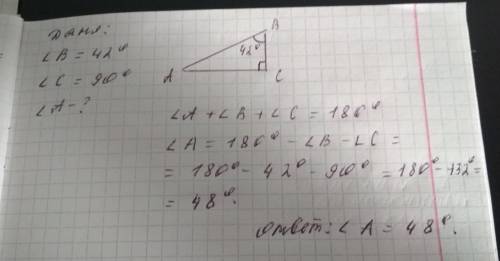 Дано:
∠B = 42°
∠C = 90°
∠A - ?
B
42°
A
C
∠A + ∠B + ∠C = 180°
∠A = 180° - ∠B - ∠C =
= 180° - 42° - 90° = 180° - 132° =
= 48°.
Ответ: ∠A = 48°.